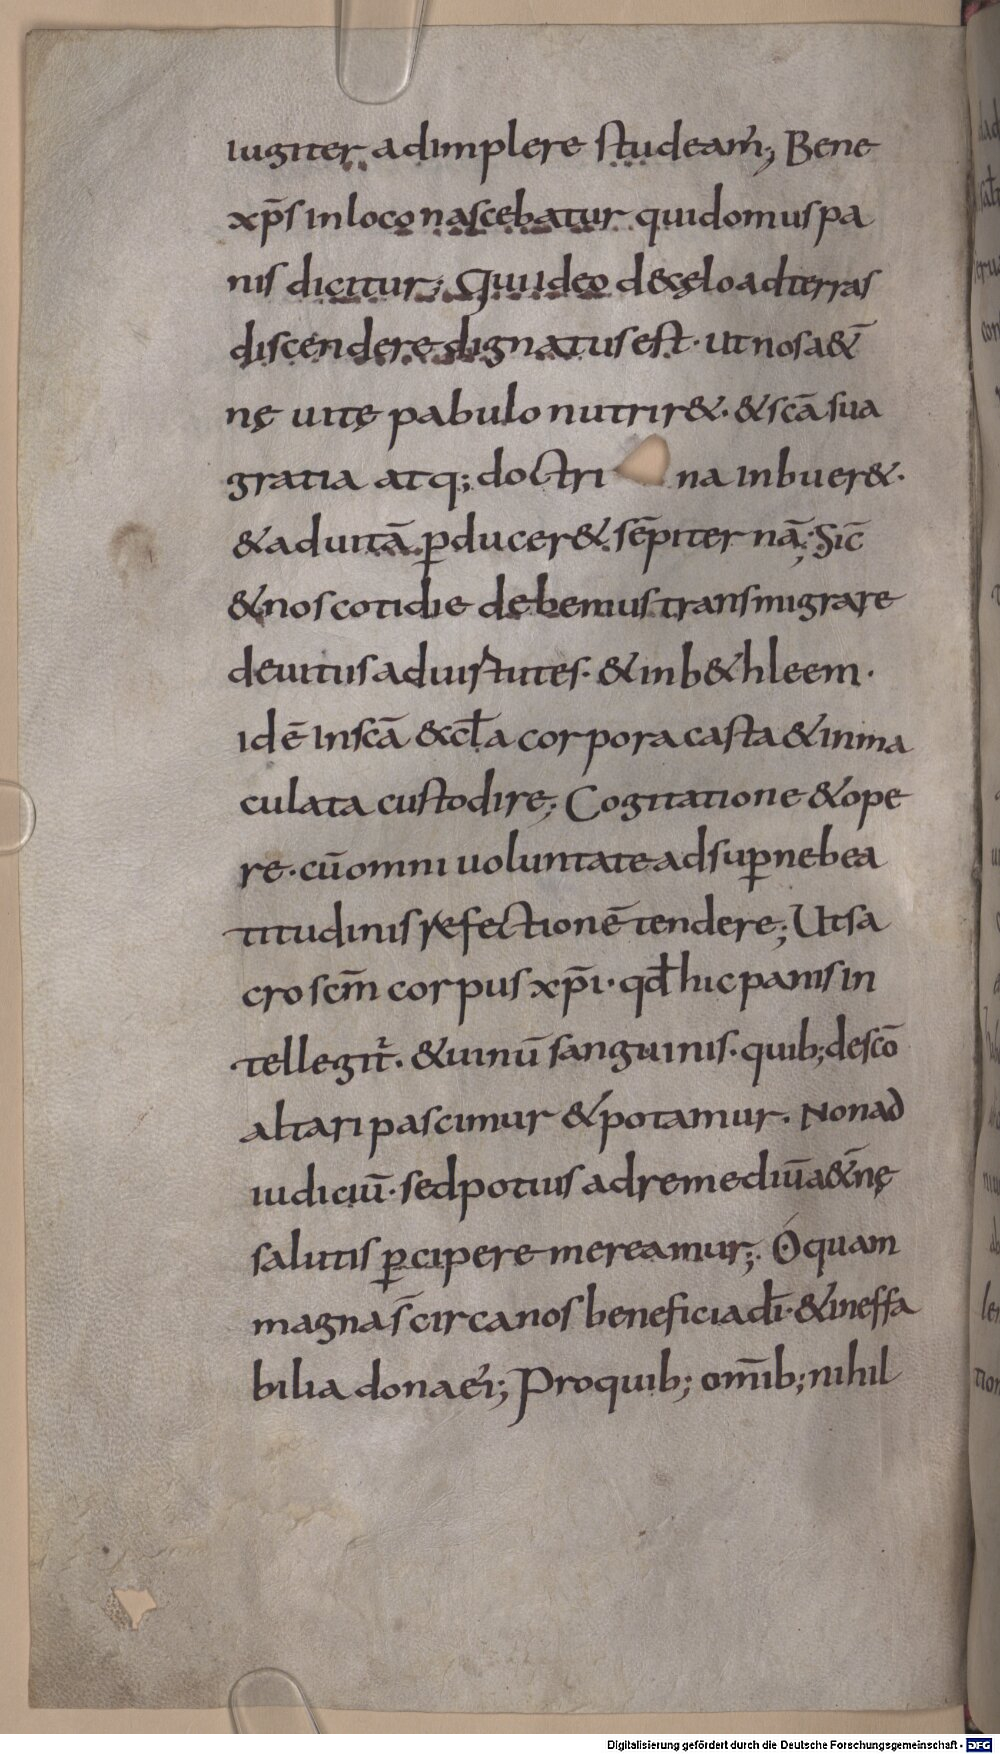 iugiter adimplere studeam̄; Bene
xp̄s inloco nascebatur quidomus pa
nis dicitur; Quiideo d&cęlo adterras
discendere dignatus est· ut nos a&̄
nę uitę pabulo nutrir&· & sc̄a sua
gratia atq; doctri na inbuer&·
& aduitā p̱ducer& sēpiter nā; Sic̄
& nos cotidie debemus transmigrare
deuitiis aduirtutes· & inb&hleem·
idē Insc̄a &cl̄a corpora casta & inma
culata custodire; Cogitatione & ope
re· cū omni uoluntate adsup̱ne bea
titudinis refectionē tendere; Utsa
cro sc̄m corpus xp̄i· qđ hic panis in
tellegit᷑· & uinū sanguinis· quib; desc̄o
altari pascimur & potamur· Nonad
iudiciū· sed potius adremediū a&̄nę
salutis p̱cipere mereamur; O quam
magnas̄ circanos beneficia dī· & ineffa
bilia dona ei; Proquib; om̄ib; nihil
Digitalisierung gefördert durch die Deutsche Forschungsgemeinschaft - DFG